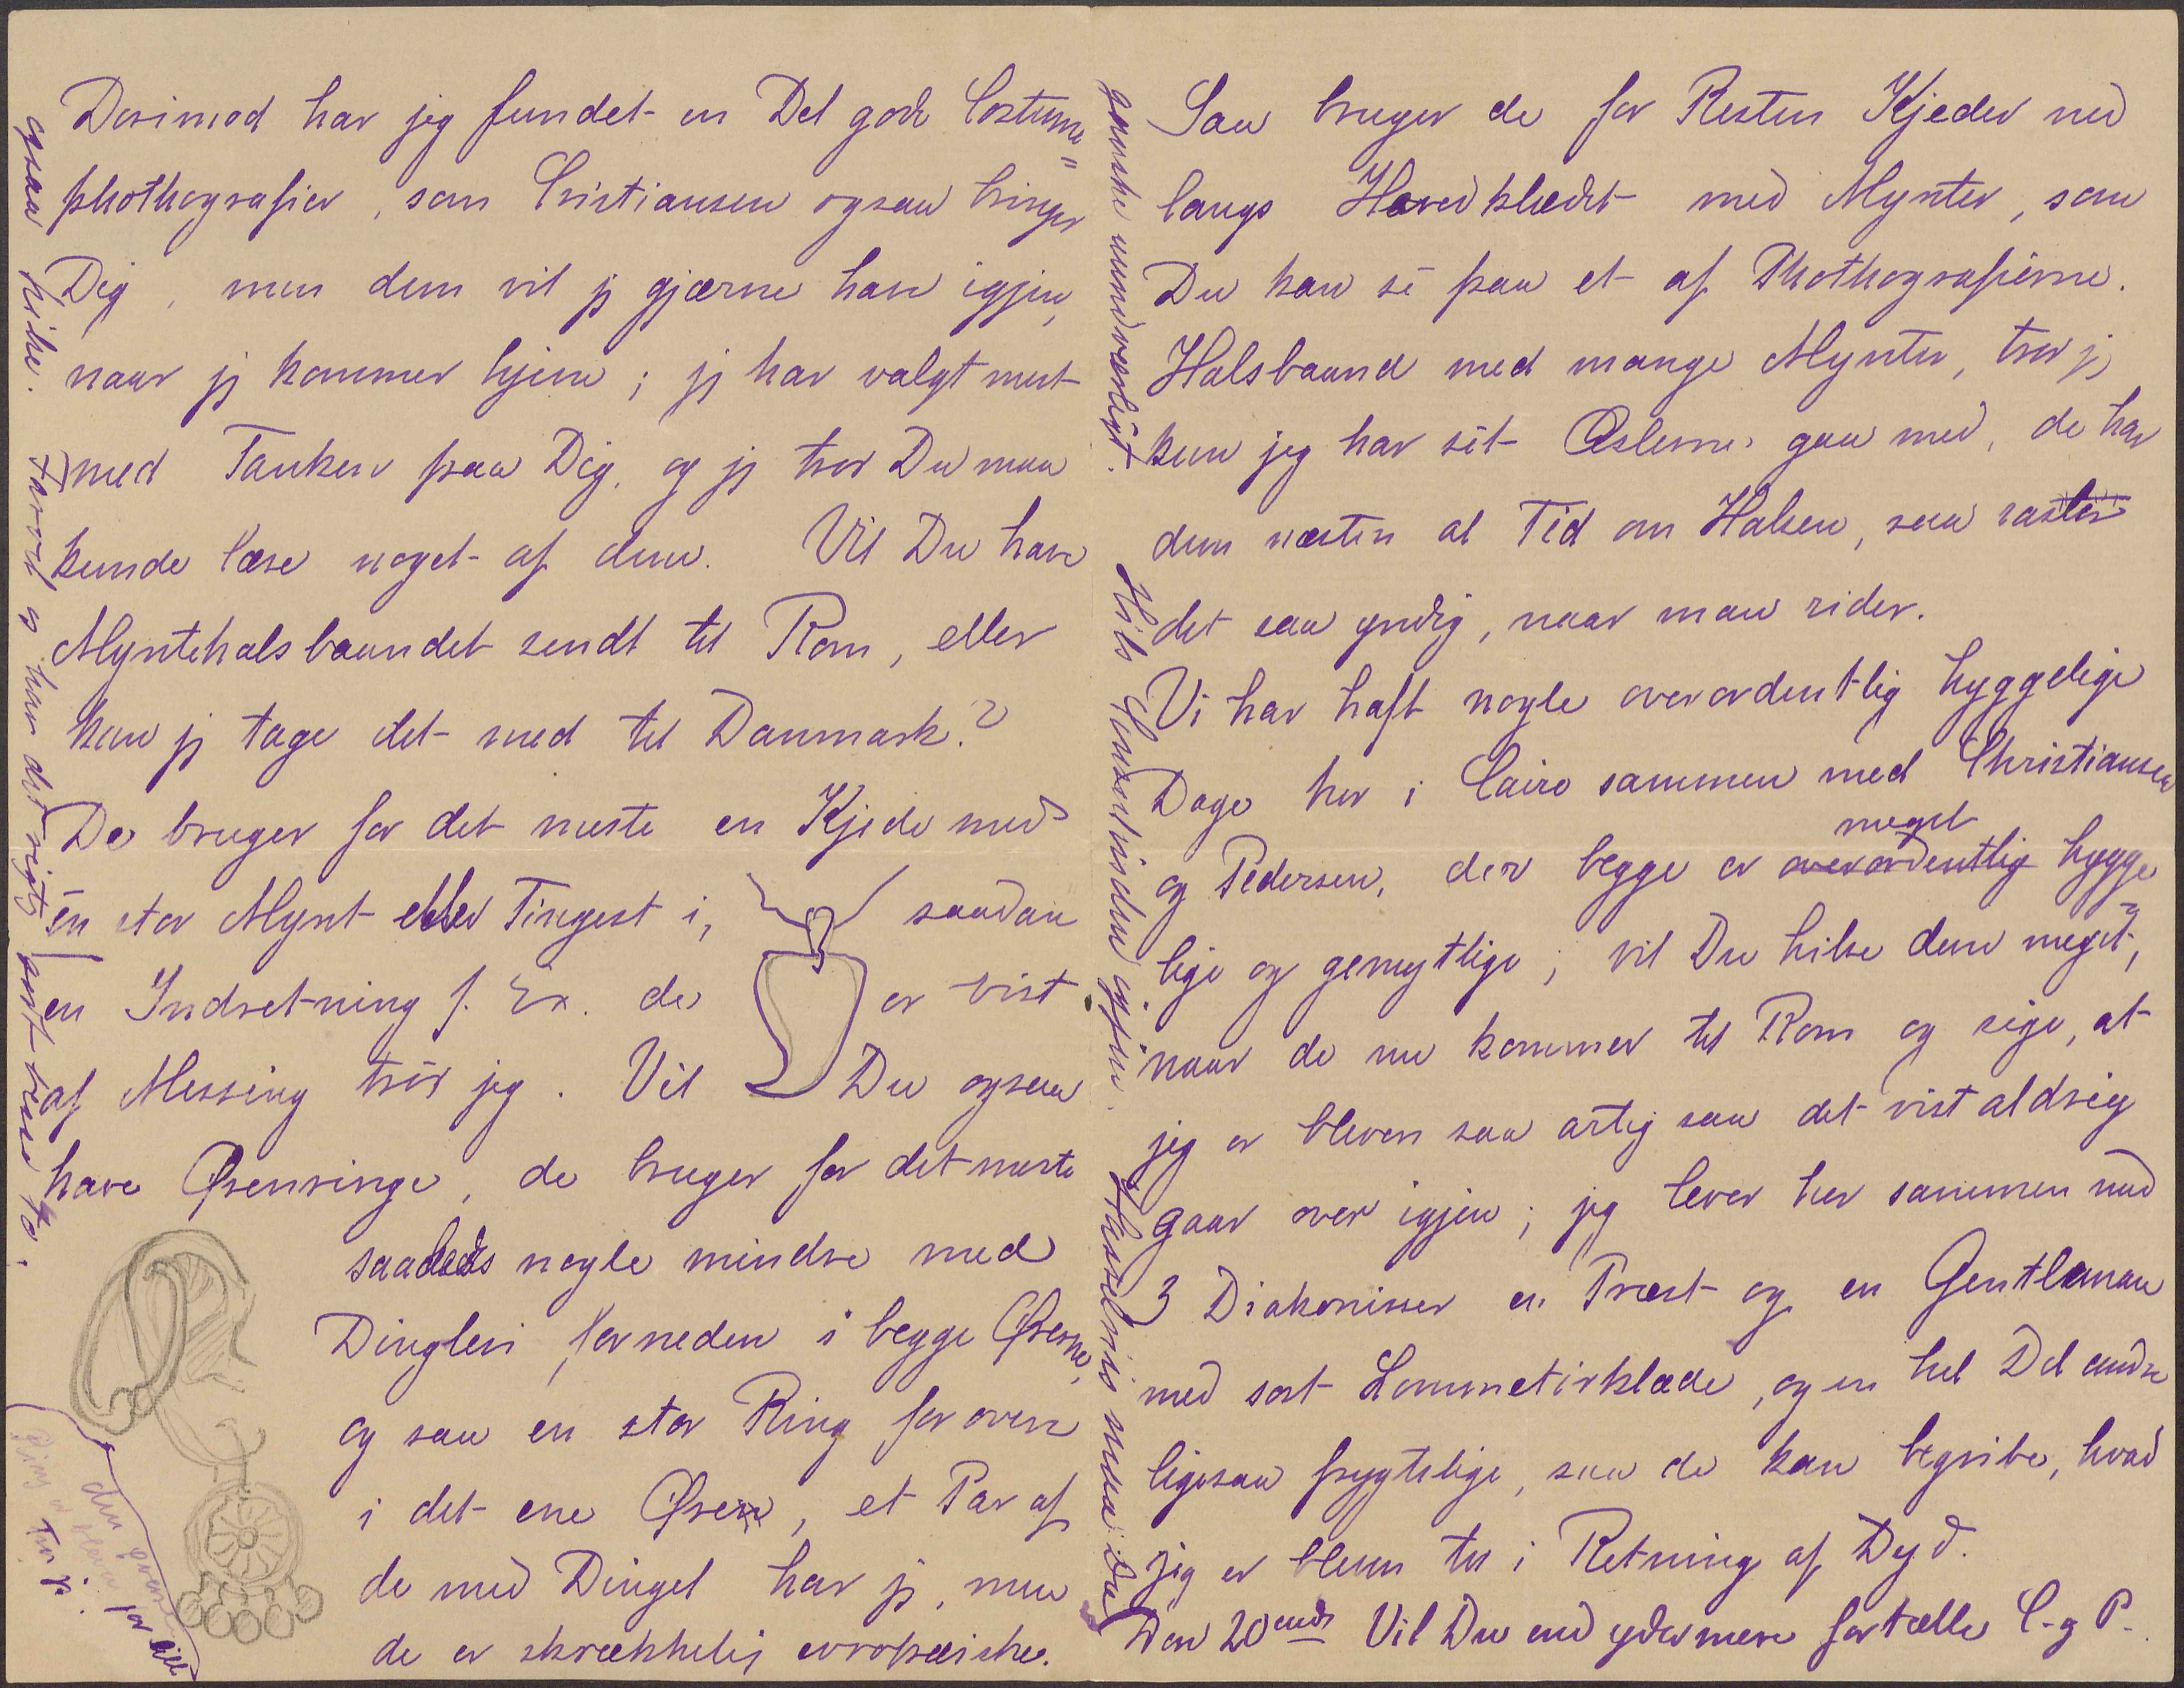 Derimod har jeg fundet en Del gode Costume=
phothografier, som Cristiansen ogsaa bringer
Dig, men dem vil jg gjærne have igjen,
naar jg kommer hjem; jg har valgt mest
med Tanken paa Dig, og jg tror Du maa
kunde læse noget af dem. Vil Du have
Myntehalsbaandet sendt til Rom, eller
kan jg tage det med til Danmark?
De bruger for det meste en Kjede med
én stor Mynt eller Tingest i, saadan
en Indretning f. Ex. der er vist
af Messing tror jeg. Vil Du ogsaa
have Ørenringe, de bruger for det meste
saaledes nogle mindre med
Dingleri forneden i begge Ørerne,
og saa en stor Ring for oven
i det ene Øre, et Par af
de med Dingel har jg, men
de er skrækkelig evropæiske.
den øverste
Ring er
for lille
tror jg.
ogsaa hilse.
Farvel og hav det rigtig godt
Saa bruger de for Resten Kjeder ned
langs Hovedklædet med Mynter, som
Du kan sé paa et af Phothografierne.
Halsbaand med mange Mynter, tror jg
kun jeg har sét Æslerne gaa med, de har
dem næsten al Tid om Halsen, saa rasler
det saa yndig, naar man rider.
Vi har haft nogle overordentlig hyggelige
Dage her i Cairo sammen med Christiansen
og Pedersen, der begge er overordentlig meget hygge
lige og gemytlige; vil Du hilse dem meget,
naar de nu kommer til Rom og sige, at
jeg er bleven saa artig saa det vist aldrig
gaar over igjen; jeg lever her sammen med
3 Diakonisser en Præst og en Gentleman
med sort Lommetørklæde, og en hel Del andre
ligesaa frygtelige, saa de kan begribe, hvad
jeg er bleven til i Retning af Dyd.
Den 20ende Vil Du end ydermere fortælle C. og P.
ganske uundværligt.
Hils igjen.
maa Du